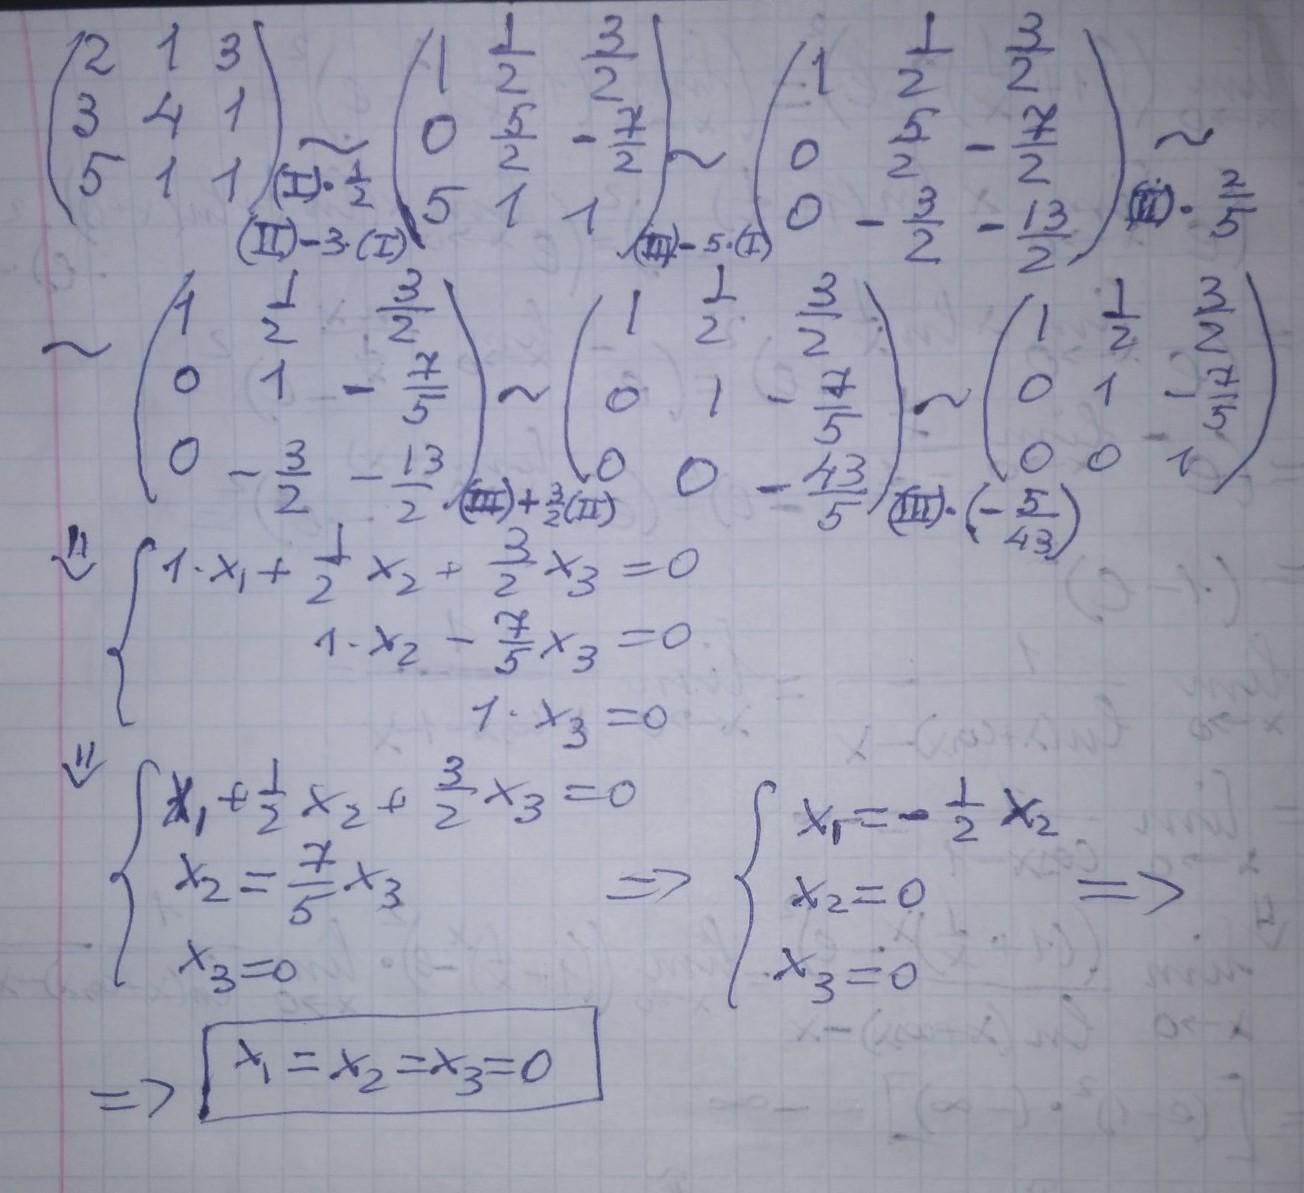 (2 1 3; 3 4 1; 5 1 1) ~ (I)·1/2 (II)-3·(I) (1 1/2 3/2; 0 5/2 -7/2; 5 1 1) ~ (III)-5·(I) (1 1/2 3/2; 0 5/2 -7/2; 0 -3/2 -13/2) ~ (II)·2/5
~ (1 1/2 3/2; 0 1 -7/5; 0 -3/2 -13/2) ~ (III)+3/2(II) (1 1/2 3/2; 0 1 -7/5; 0 0 -43/5) ~ (III)·(-5/43) (1 1/2 3/2; 0 1 -7/5; 0 0 1)
=> { 1·x₁ + 1/2 x₂ + 3/2 x₃ = 0
1·x₂ - 7/5 x₃ = 0
1·x₃ = 0
=> { x₁ + 1/2 x₂ + 3/2 x₃ = 0
x₂ = 7/5 x₃
x₃ = 0
=> { x₁ = -1/2 x₂
x₂ = 0 =>
x₃ = 0
=> x₁ = x₂ = x₃ = 0